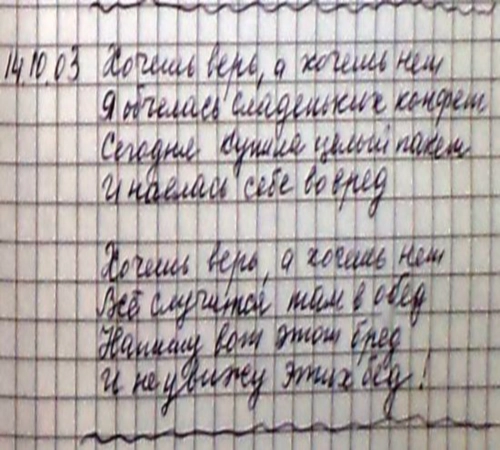 14.10.03 Хочешь верь, а хочешь нет
Я объелась сладеньких конфет
Сегодня купила целый пакет
И наелась себе во вред
Хочешь верь, а хочешь нет
Всё случится там в обед
Напишу вот этот бред
И не увижу этих бед!